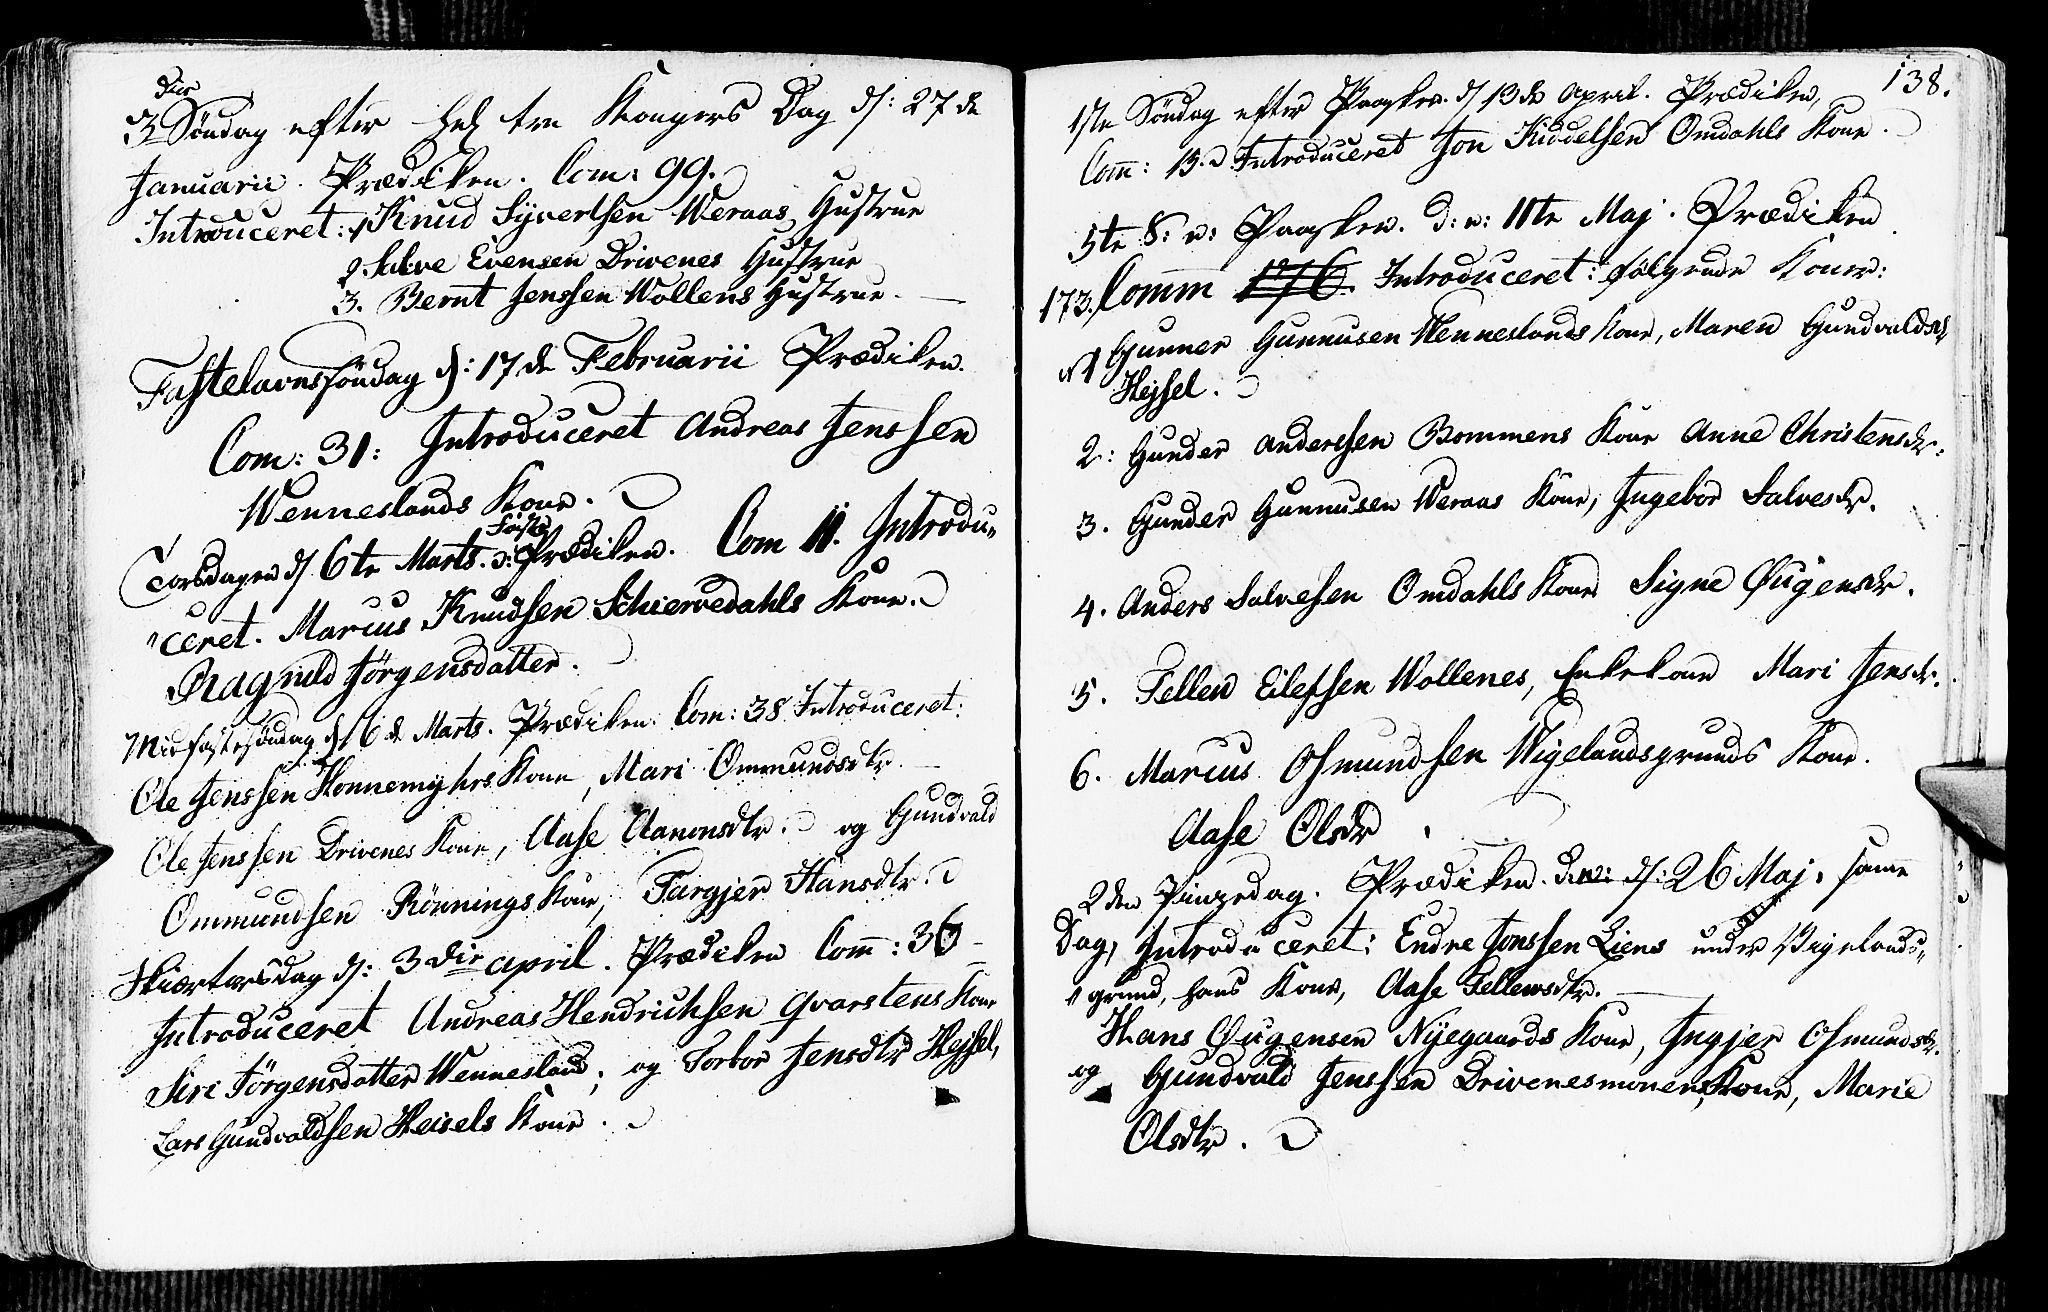 3die Söndag efter Hel tre Kongers Dag d: 27de
Januarii. Prædiken. Com: 99.
Introduceret: 1 Knud Syvertsen Weraas Hustrue
2. Salve Evensen Drivenes Hustrue
3. Bernt Jenssen Wollens Hustrue. —
Fastelavnssöndag d: 17de Februarii Prædiken.
Com: 31: Introduceret Andreas Jenssen
Wenneslands Kone.
Torsdagen d 6te Marts. Faste Prædiken. Com 11. Introdu„
„ceret. Marcus Knudsen Schiervedahls Kone.
Ragnild Jörgensdatter.
Midfastesöndag d 16 d Marts. Prædiken. Com: 38 Introduceret:
Ole Jenssen Honnemyhrs Kone, Mari Ommundsdtr. —
Ole Jenssen Drivenes Kone, Aase Aanonsdtr. og Gundvald
Ommundsen Rönnings Kone, Targjer Hansdtr.
Skiertorsdag d: 3die april. Prædiken Com̄: 36 —
Introduceret Andreas Hendrichsen Qvarstens Kone
Siri Jörgensdatter Wennesland; og Torbor Jensdtr Heysel,
Lars Gundvaldsen Heisels Kone.
138.
1ste Söndag efter Paaske. d 13de April. Prædiken,
Com̄: 15. Introduceret Jon Kiddelsen Omdahls Kone.
5te S: e: Paaske. d: e: 11te Maj. Prædiken
173. Comm̄ 176. Introduceret: følgende Koner:
N 1 Gunner Gunnusen Wenneslands Kone, Maren Gundvaldsdr
Heysel.
2: Gunder Anderssen Bommens Kone Anne Christensdr.
3. Gunder Gunnusen Weraas Kone, Ingebor Salvesdr.
4. Anders Salvesen Omdahls Kone Signe Øugensdr.
5. Tellew Eilefsen Wollenes, Enkekone Mari Jensdr.
6. Marcus Osmundsen Wigelandsgrunds Kone.
Aase Olsdr
2den Pinzedag. Prædiken. d: 26 Maj, samme
Dag, Introduceret: Endre Jonssen Liens under Vigelands„
„grund, hans Kone, Aase Tellewsdtr. —
Hans Øugensen Nyegaards Kone, Ingjer Osmundsdr.
og Gundvald Jenssen Drivenesmonens Kone, Marie
Olsdtr.